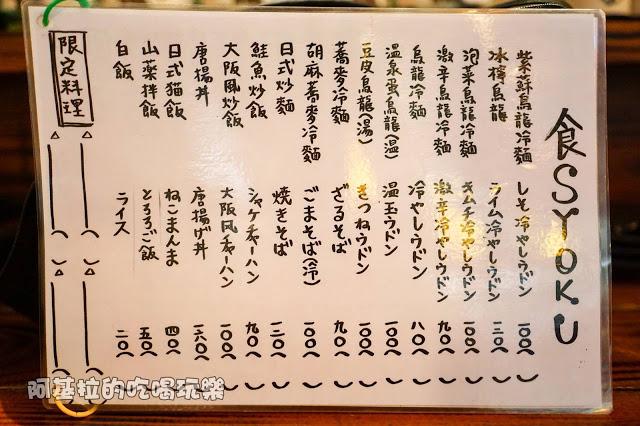 食SYOKU
紫蘇烏龍冷麵 しそ冷やしウドン 一〇〇
冰檸烏龍 ライム冷やしウドン 一〇〇
泡菜烏龍冷麵 キムチ冷やしウドン 一〇〇
激辛烏龍冷麵 激辛冷やしウドン 九〇
烏龍冷麵 冷やしウドン 八〇
溫泉蛋烏龍(溫) 温玉ウドン 一〇〇
豆皮烏龍(湯) きつねウドン 一〇〇
蕎麥冷麵 ざるそば 九〇
胡麻蕎麥冷麵 ごまそば(冷) 一〇〇
日式炒麵 焼きそば 一二〇
鮭魚炒飯 シャケチャーハン 九〇
大阪風炒飯 大阪風チャーハン 一〇〇
唐揚丼 唐揚げ丼 一六〇
日式猫飯 ねこまんま 四〇
山藥拌飯 とろろご飯 五〇
白飯 ライス 二〇
限定料理
阿基拉的吃喝玩樂